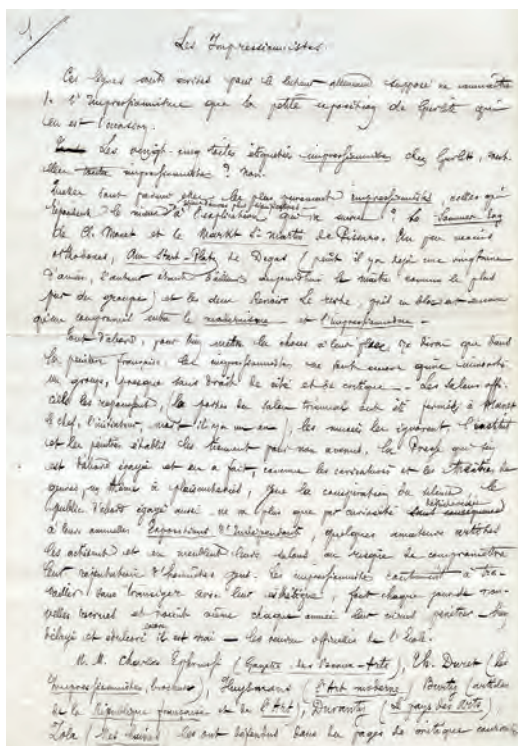 1/
Les Impressionnistes.
Ces lignes sont écrites pour le lecteur allemand supposé ne connaître
de l'Impressionnisme que la petite exposition de Gurlitt qui
en est l'occasion.
Les vingt-cinq toiles étiquetées impressionnistes chez Gurlitt, sont-
elles toutes impressionnistes ? Non.
sont les plus purement impressionnistes, celles qui
répondent le mieux à l'explication qui va suivre ? Le Sommer Tag
de Cl. Monet et le Markt St Martin de Pissaro. Un peu moins
orthodoxes, Am Start-Platz de Degas (peint il y a déjà une vingtaine
d'années, l'auteur étant d'ailleurs aujourd'hui le maître comme le plus
pur du groupe) et les deux Renoir. Le reste, pris en bloc est encore
qu'un compromis entre le modernisme et l'impressionnisme.
Tout d'abord, pour bien mettre les choses à leur place je dirai que dans
la peinture française les impressionnistes ne sont encore qu'une minorité
un groupe, presque sans droit de cité et de critique. - Les salons offi-
ciels les repoussent, les portes du salon triennal ont été fermées à Manet
le chef, l'initiateur, mort il y a un an), les musées les ignorent, l'institut
et les peintres établis les tiennent pour non avenus. La Presse qui s'en
est d'abord égayée et en a fait, comme les caricatures et les théâtres de
genres, un thème à plaisanteries, fait la conspiration du silence. Le
public d'abord égayé aussi ne va plus que par curiosité
à leurs annuelles Expositions d'Indépendants, quelques amateurs artistes
les achètent et en meublent leurs salons au risque de compromettre
leur réputation d'hommes de goût. Les impressionnistes continuent à tra-
vailler sans transiger avec leur esthétique, font chaque jour de nou-
velles recrues et voient même chaque année leur virus pénétrer - très
délayé et édulcoré encore il est vrai - les œuvres officielles de l'école.
M. M. Charles Ephrussi (Gazette des Beaux-Arts), Th. Duret (les
Impressionnistes, brochure), Huysmans (l'Art moderne) Burty (articles
de la République française et de l'Art), Duranty (le pays des Arts),
Zola (Mes haines) les ont défendus dans des pages de critique